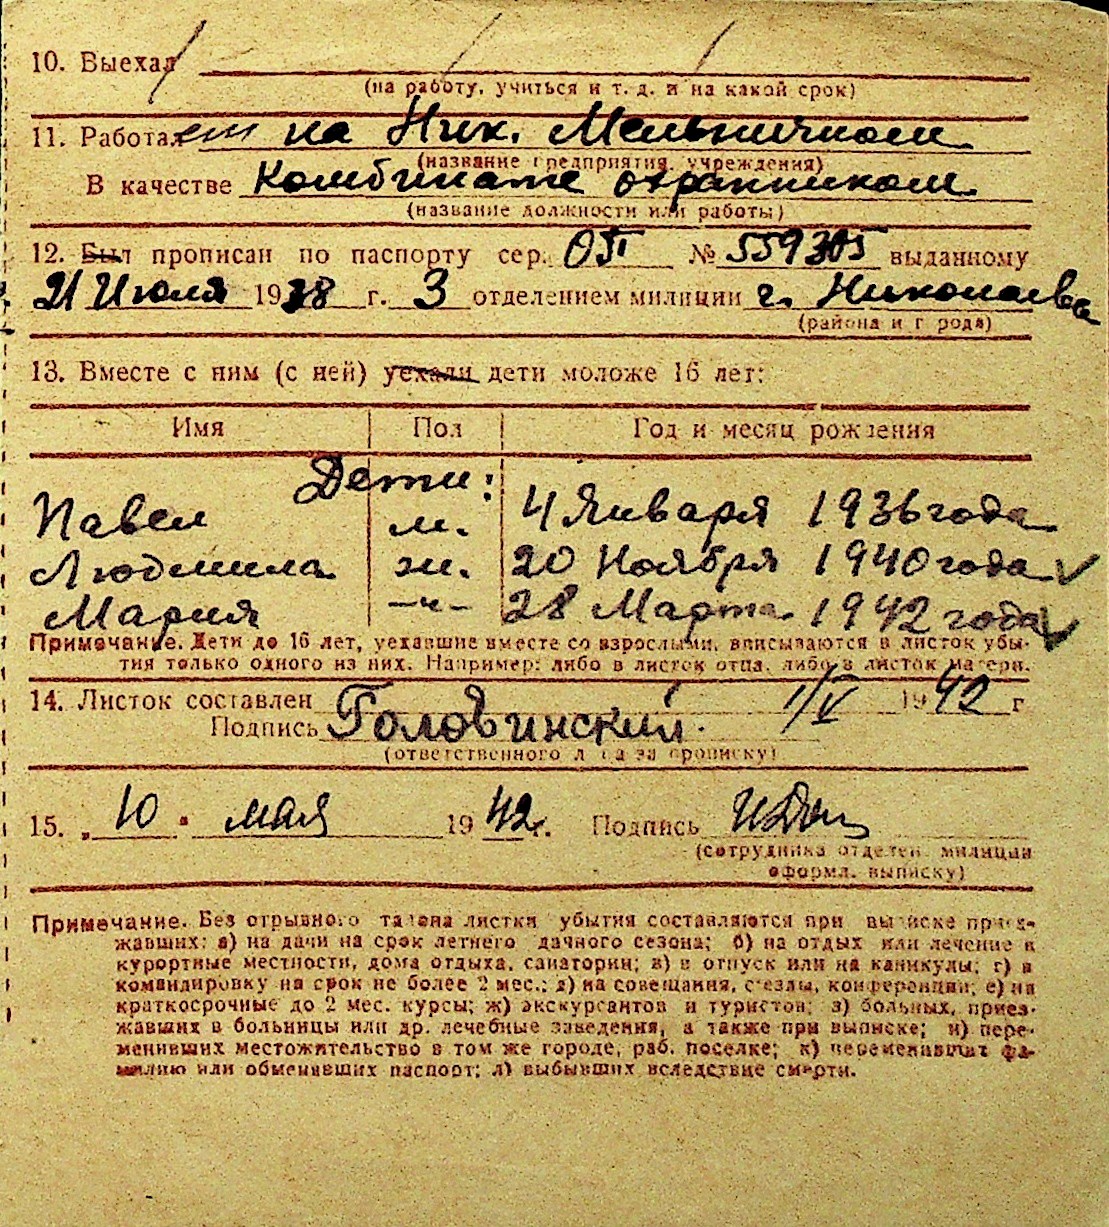 10. Выехал
(на работу, учиться и т. д. и на какой срок)
11. Работает на Ник. Мельничном
(название предприятия, учреждения)
В качестве Комбинате охранником
(название должности или работы)
12. Был прописан по паспорту сер. № 559305 выданному
21 Июля 1938 г. 3 отделением милиции г. Николаева
(района и города)
13. Вместе с ним (с ней) уехали дети моложе 16 лет:
Имя Пол Год и месяц рождения
Дети:
Павел м. 4 Января 1936 года
Людмила ж. 20 Ноября 1940 года
Мария –"– 28 Марта 1942 года
Примечание. Дети до 16 лет, уехавшие вместе со взрослыми, вписываются в листок убы-
тия только одного из них. Например: либо в листок отца, либо в листок матери.
14. Листок составлен 1/V 1942 г
Подпись Головинский.
(ответственного лица за прописку)
15. „10" мая 1942 г. Подпись
(сотрудника отделен. милиции
оформл. выписку)
Примечание. Без отрывного талона листки убытия составляются при выписке приез-
жавших: а) на дачи на срок летнего дачного сезона; б) на отдых или лечение в
курортные местности, дома отдыха, санатории; в) в отпуск или на каникулы; г) в
командировку на срок не более 2 мес.; д) на совещания, съезды, конференции; е) на
краткосрочные до 2 мес. курсы; ж) экскурсантов и туристов; з) больных, приез-
жавших в больницы или др. лечебные заведения, а также при выписке; и) пере-
менивших местожительство в том же городе, раб. поселке; к) переменивших фа-
милию или обменивших паспорт; л) выбывших вследствие смерти.